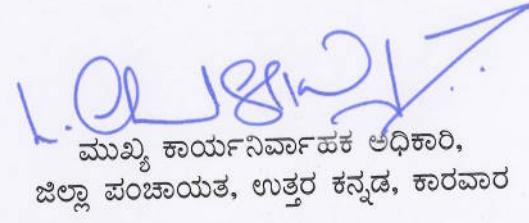 ಮುಖ್ಯ ಕಾರ್ಯನಿರ್ವಾಹಕ ಅಧಿಕಾರಿ,
ಜಿಲ್ಲಾ ಪಂಚಾಯತ, ಉತ್ತರ ಕನ್ನಡ, ಕಾರವಾರ